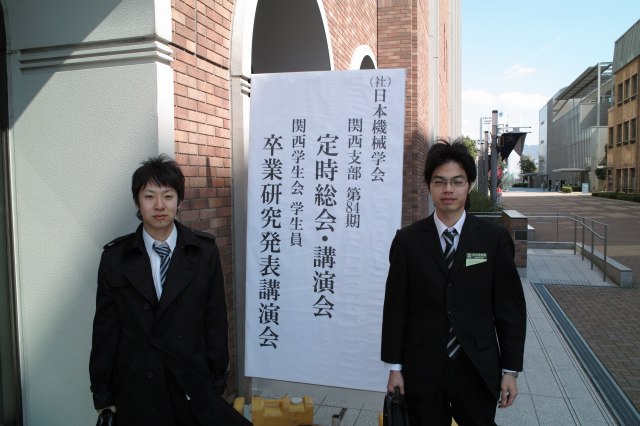 (社)日本機械学会
関西支部 第84期
定時総会・講演会
関西学生会 学生員
卒業研究発表講演会